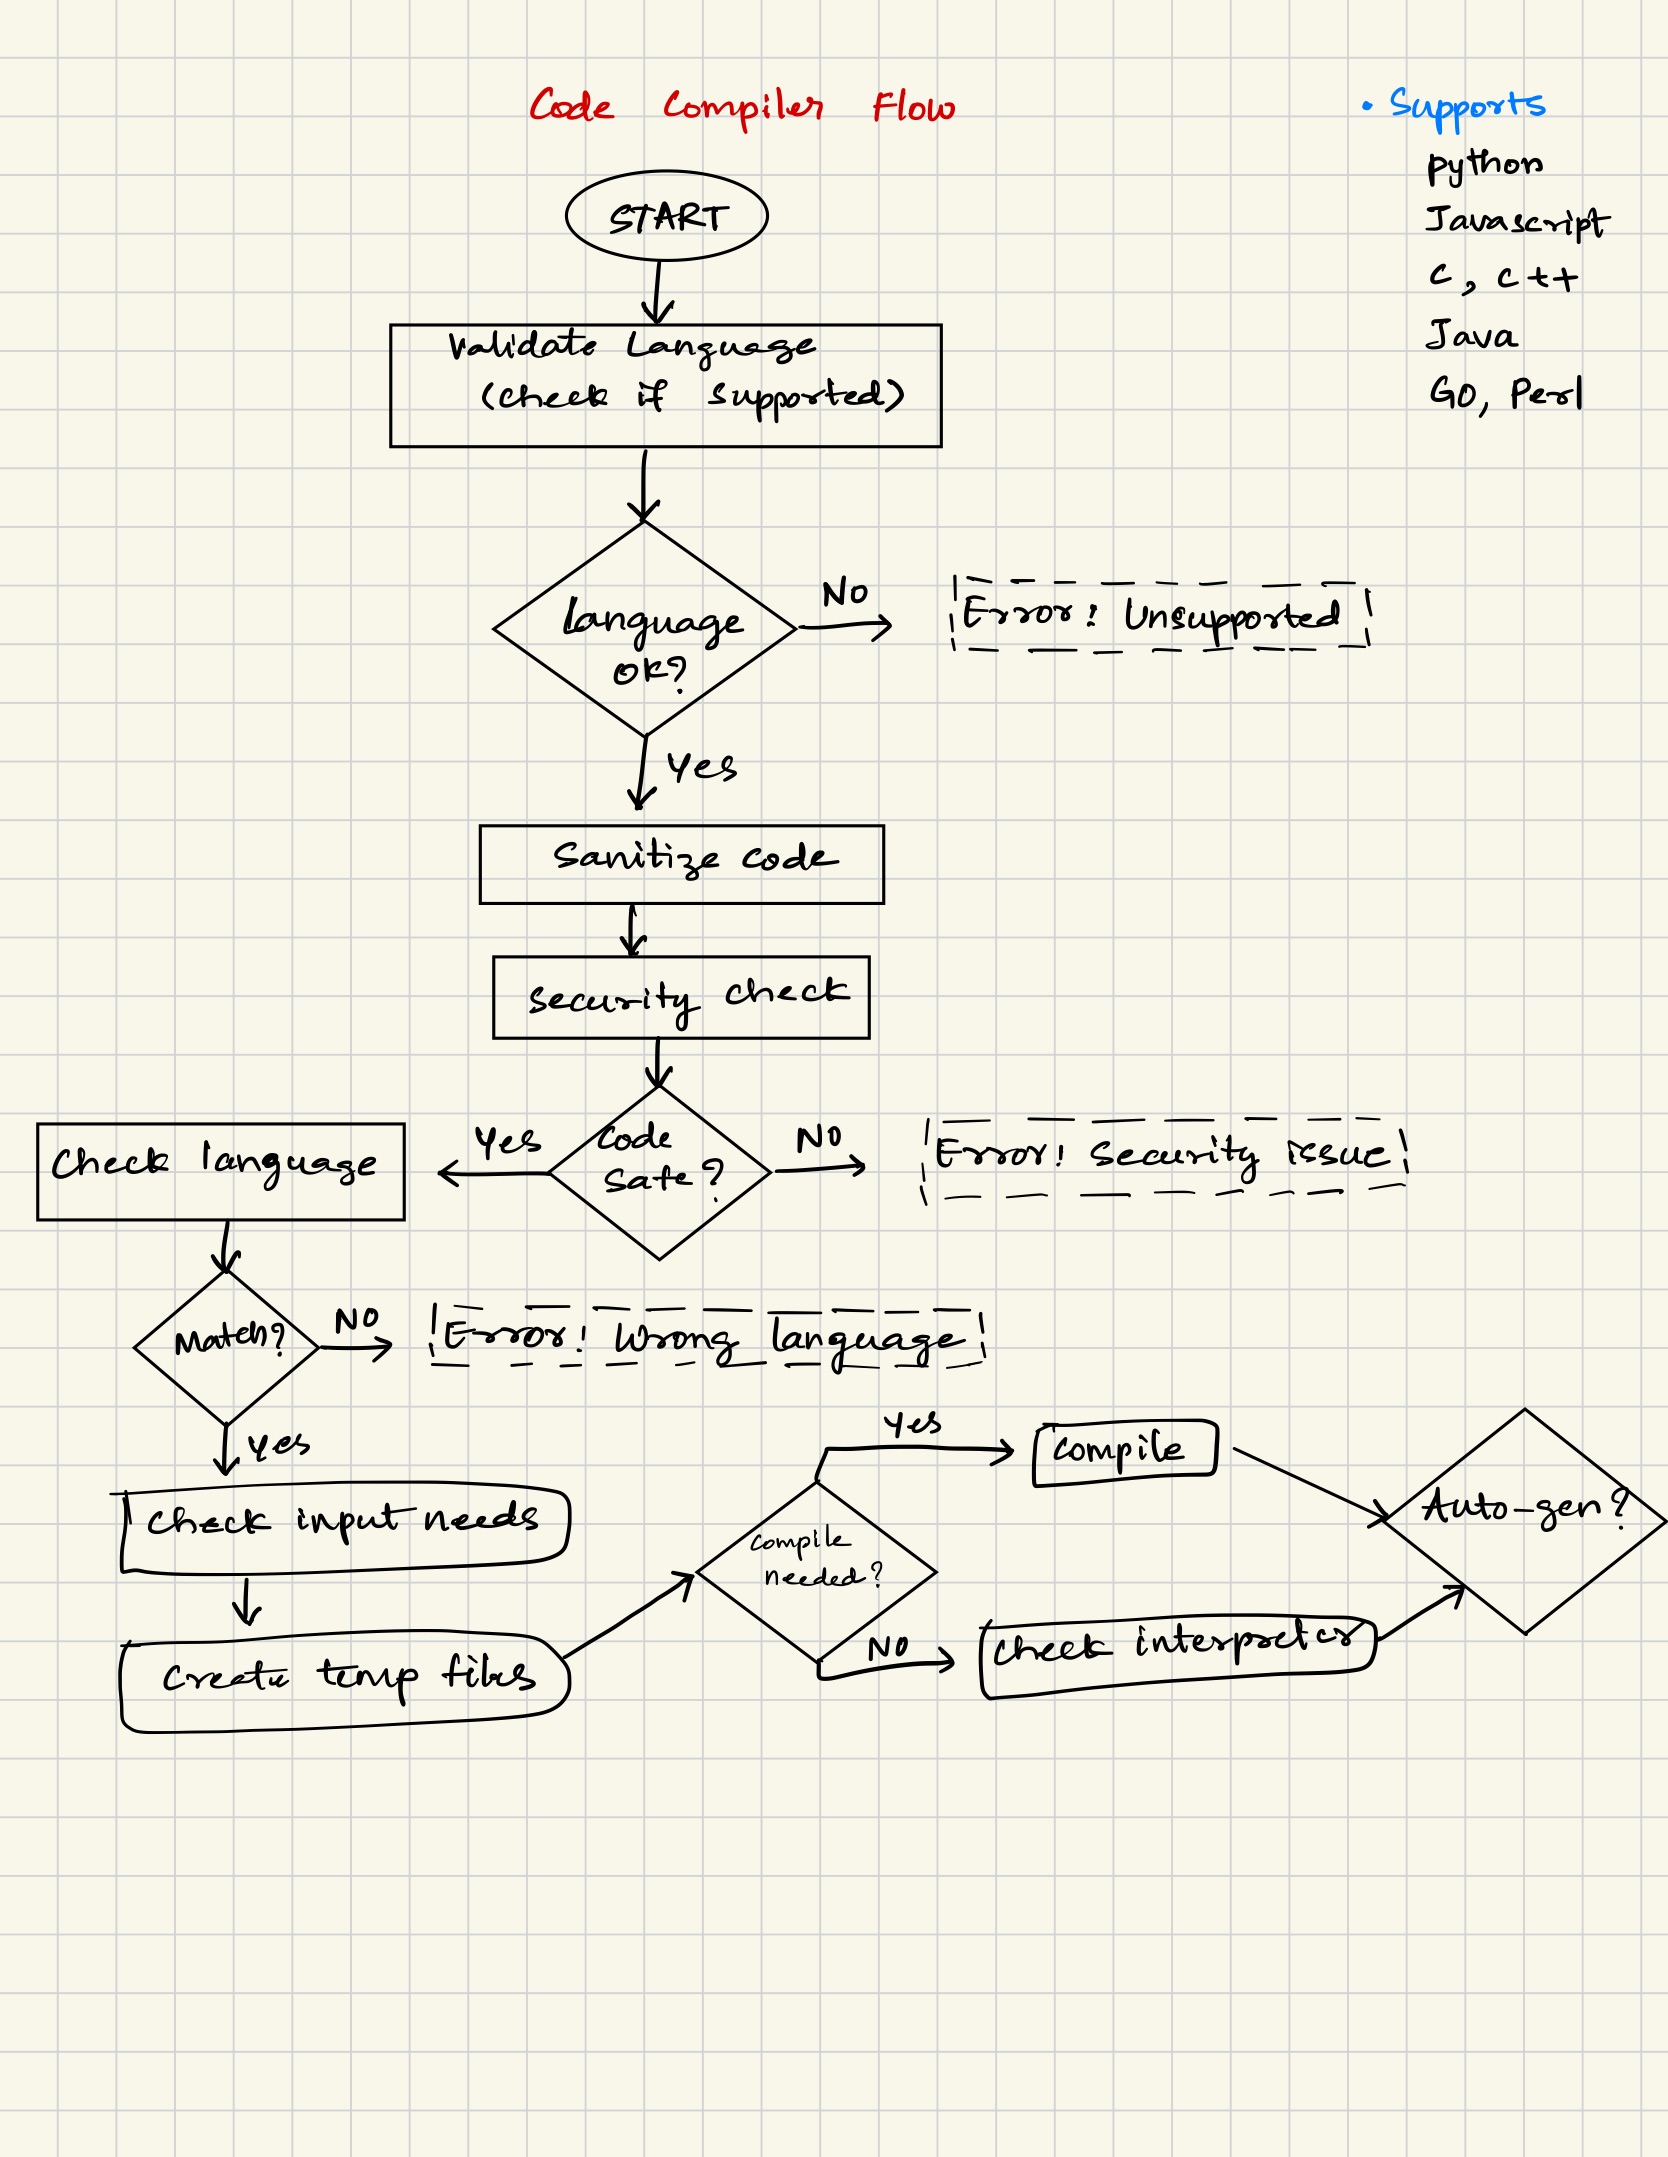 Code Compiler Flow
• Supports
python
Javascript
C, C++
Java
GO, Perl
START
Validate Language
(check if supported)
Language
OK?
NO
Error! Unsupported
Yes
Sanitize code
Security check
Code
Safe?
Yes
NO
Error! Security issue
Check language
Match?
NO
Error! Wrong language
Yes
Check input needs
Create temp files
Compile
needed?
Yes
Compile
NO
Check interpreter
Auto-gen?